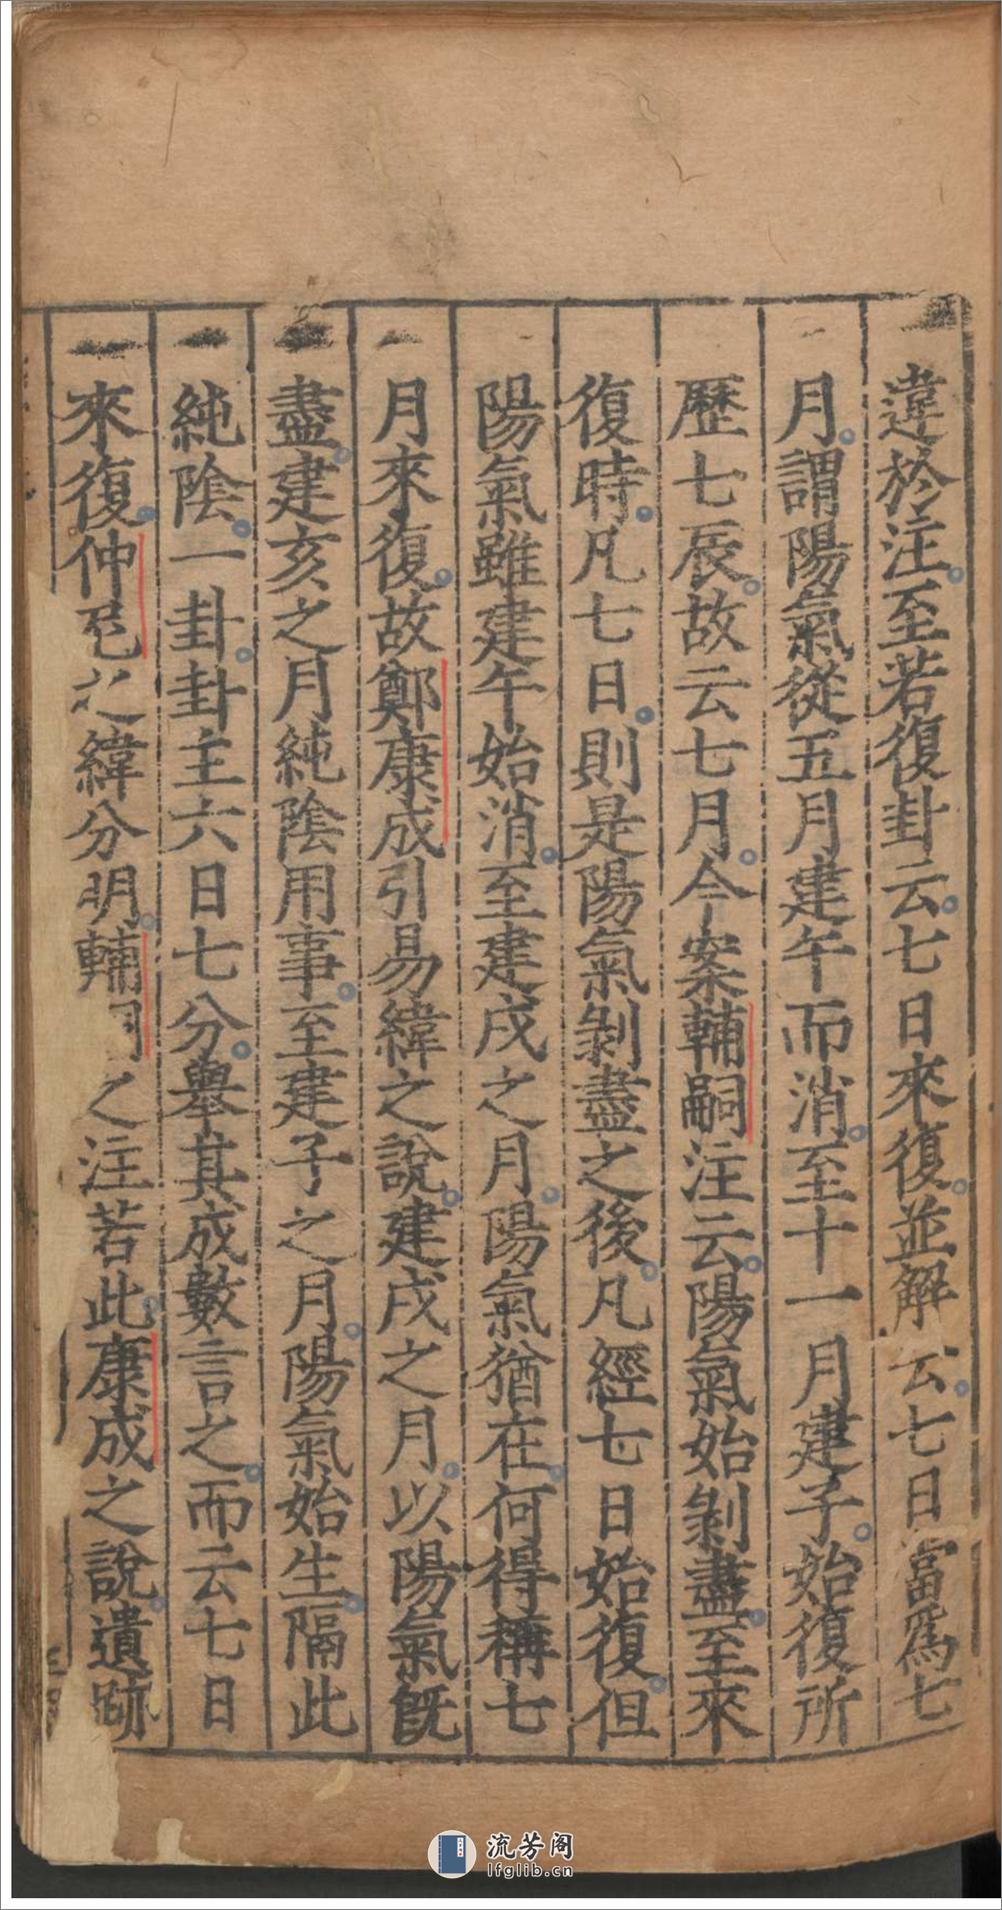 違於注至若復卦云七日來復並解云七日當爲七
月謂陽氣從五月建午而消至十一月建子始復所
歷七辰故云七月今案輔嗣注云陽氣始剝盡至來
復時凡七日則是陽氣剝盡之後凡經七日始復但
陽氣雖建午始消至建戌之月陽氣猶在何得稱七
月來復故鄭康成引易緯之說建戌之月以陽氣旣
盡建亥之月純陰用事至建子之月陽氣始生隔此
純陰一卦卦主六日七分舉其成數言之而云七日
來復仲尼之緯分明輔嗣之注若此康成之說遺跡
流芳阁
lfglib.cn